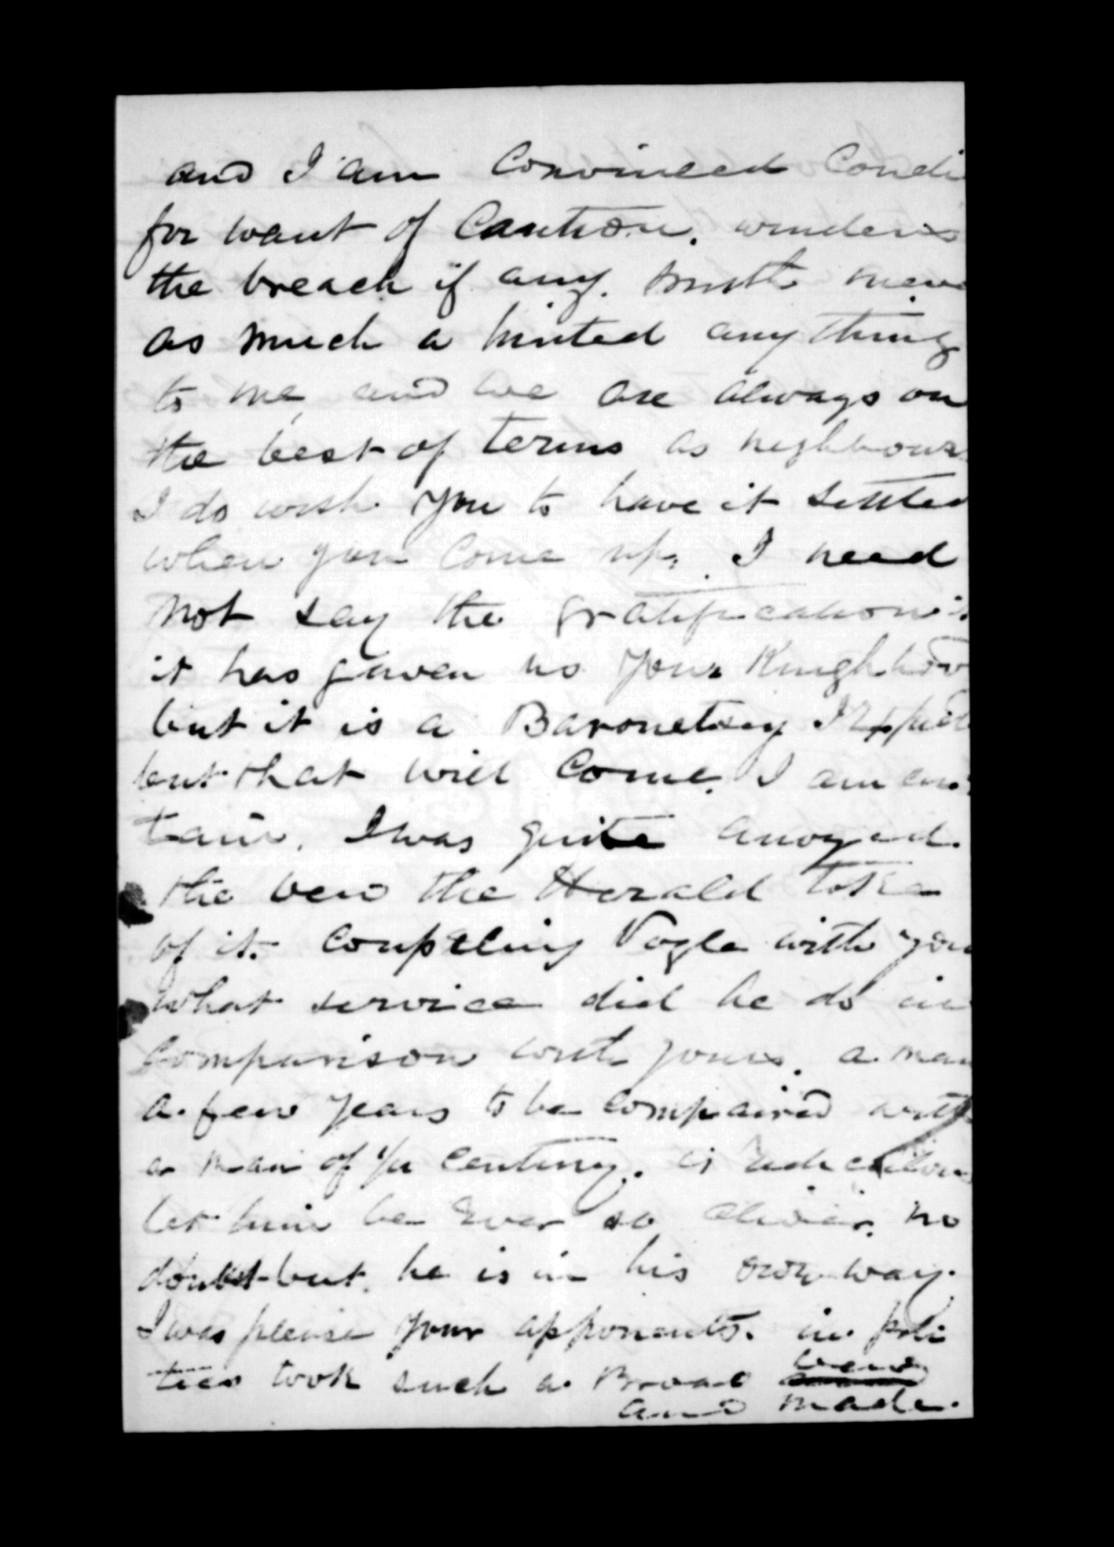 and I am Convinced Condi
for want of Caution. winder
the breach if any. Smith never
as much a hinted any thing
to me, and we are always on
the best of terms as neghbours
I do wish you to have it settled
when you Come up. I need
not say the gratification
it has gaven us your Knighthood
but it is a Baronetsey I
but that will Come. I am cer
tain. I was quite anoyed.
the vew the Herald toke
of it. Coupleing Vogle with you
What service did he do in
Comparison with yours. a man
a few years to be Compaired with
a man of 1/4 Centurey. is
let him be Ever so Clivir. no
doubt but he is in his own way.
I was please your apponants. in poli
tics took such a Broad vew
and made.